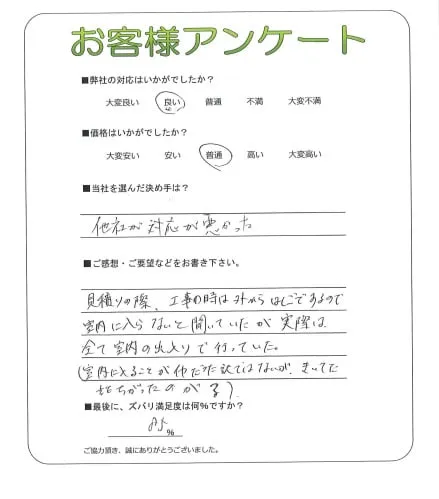 お客様アンケート
■弊社の対応はいかがでしたか？
大変良い 良い 普通 不満 大変不満
■価格はいかがでしたか？
大変安い 安い 普通 高い 大変高い
■当社を選んだ決め手は？
他社が対応が悪かった
■ご感想・ご要望などをお書き下さい。
見積りの際、工事の時は外からはしごであるので
室内に入らないと聞いていたが実際は
全て室内の出入りで行っていた。
(室内に入ることが
■最後に、ズバリ満足度は何%ですか？
%
ご協力頂き、誠にありがとうございました。